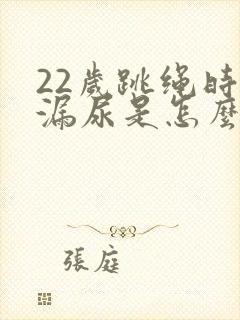 22歲跳绳時
漏尿是怎麽
張庭